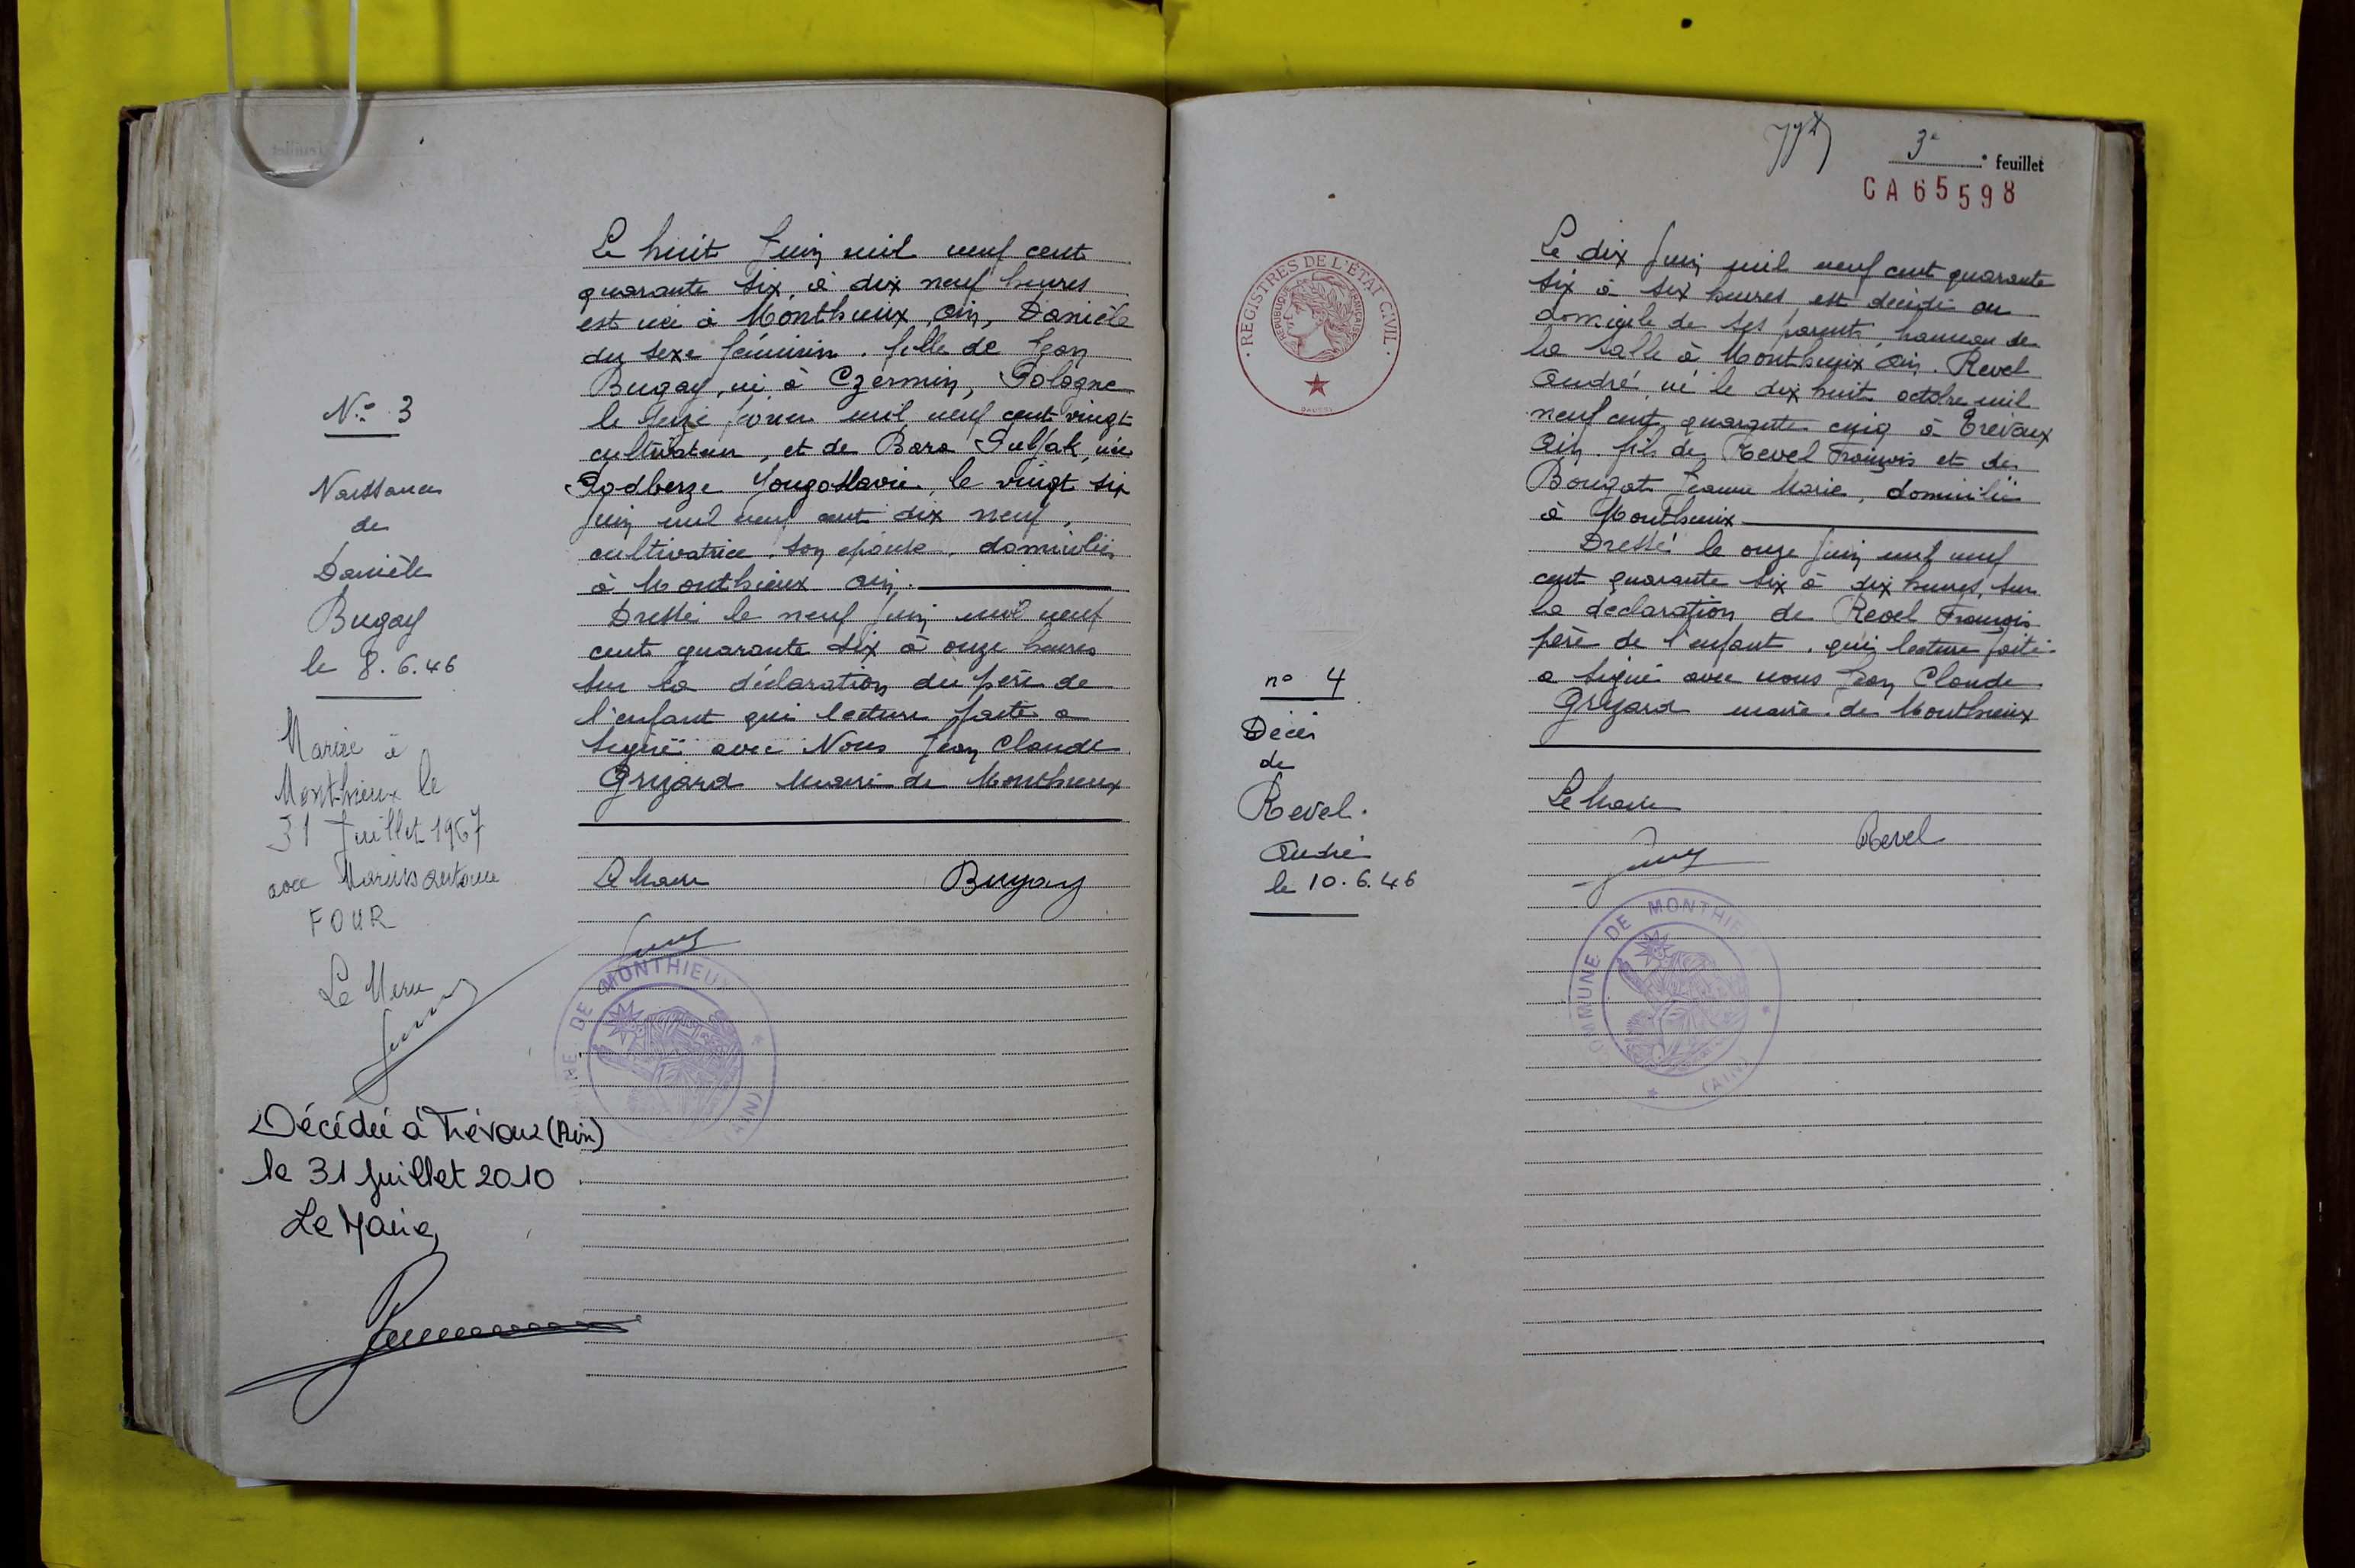 N° 3
Naissance
de
Danièle
Bugay
le 8.6.46
Mariée à
Monthieux le
31 Juillet 1967
avec Marius Antoine
FOUR
Le Maire
Décédée à Trévoux (Ain)
le 31 Juillet 2010
Le Maire,
Le huit Juin mil neuf cent
quarante six, à dix neuf heures
est née à Monthieux, Ain, Danièle
du sexe féminin. fille de Jean
Bugay, né à Czermin, Pologne
le seize mil neuf cent vingt
cultivateur, et de Bara née
Podberze Yougoslavie, le vingt six
Juin mil neuf cent dix neuf,
cultivatrice, son épouse, domiciliés
à Monthieux Ain.
Dressé le neuf Juin mil neuf
cent quarante six à onze heures
sur la déclaration du père de
l'enfant qui lecture faite a
signé avec Nous Jean Claude
Gryzard Maire de Monthieux
Le Maire Bugay
COMMUNE DE MONTHIEUX (AIN)
3e feuillet
CA65598
REGISTRES DE L'ÉTAT CIVIL
RÉPUBLIQUE FRANÇAISE
n° 4
Décès
de
Revel.
André
le 10.6.46
Le dix Juin mil neuf cent quarante
six à six heures, est décédé au
domicile de ses parents, hameau de
la Salle à Monthieux Ain. Revel
André né le dix huit octobre mil
neuf cent quarante cinq à Trévoux
Ain. fils de Revel François et de
Bougat Jeanne Marie, domiciliés
à Monthieux
Dressé le onze Juin mil neuf
cent quarante six à dix heures, sur
la déclaration de Revel François
père de l'enfant, qui lecture faite
a signé avec nous Jean Claude
Gryzard maire de Monthieux
Le Maire
Revel
COMMUNE DE MONTHIEUX (AIN)